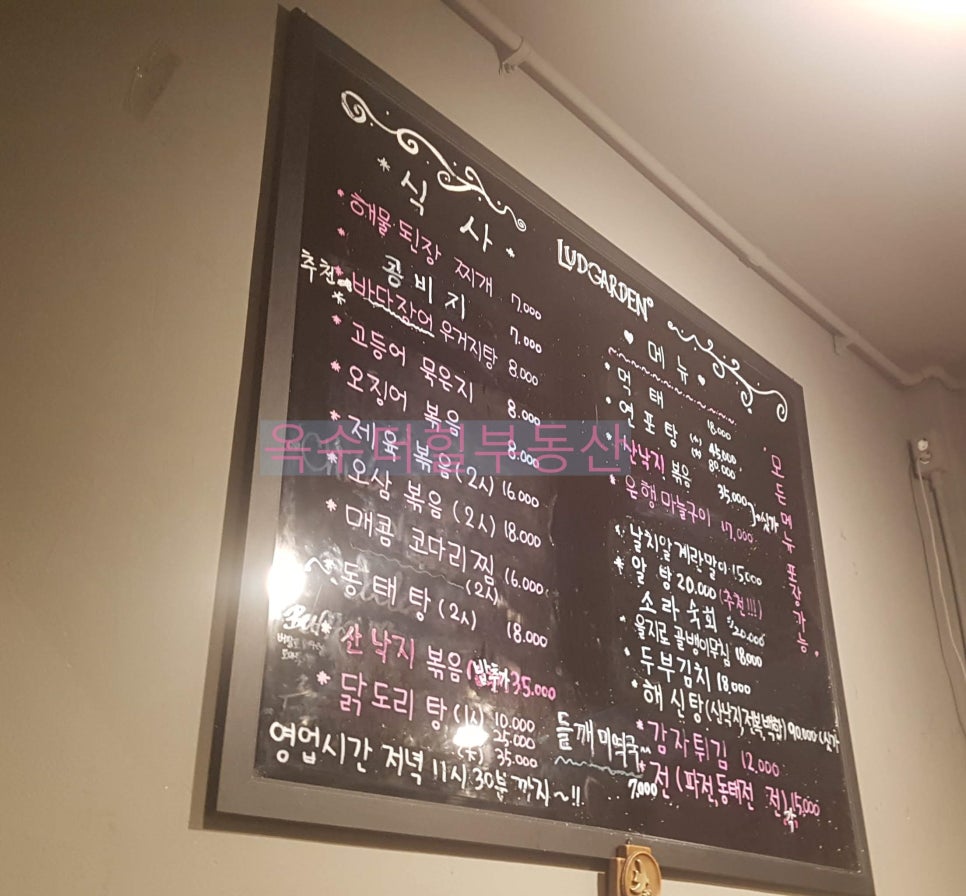 * 식 사 *
* 해물 된장 찌개 7,000
* 콩 비 지 7.000
추천 * 바다장어 우거지탕 8.000
* 고등어 묵은지 8.000
* 오징어 볶음 8.000
* 제육 볶음 (2人) 16.000
* 오삼 볶음 (2人) 18.000
* 매콤 코다리찜 (2人) 16.000
동태탕 (2人) 18.000
* 산낙지 볶음 35.000
* 닭도리탕 (1人) 10.000
25.000
(大) 35.000
영업시간 저녁 11시 30분 까지~!!
LUDGARDEN
♥ 메뉴 ♥
* 먹 태 18.000
* 연포탕 45.000
80.000
* 산낙지 볶음 35.000 싯가
* 은행 마늘구이 17,000
날치알 계란말이 15,000
* 알 탕 20.000 (추천!!!)
소라 숙회 20.000
* 을지로 골뱅이무침 18.000
* 두부김치 18.000
* 해신탕 (산낙지,전복,백합) 90,000 (싯가
* 감자튀김 12,000
* 전 (파전,동태전 전) 15,000
들깨 미역국~ 7.000
모든메뉴 포장가능.
옥수더힐부동산